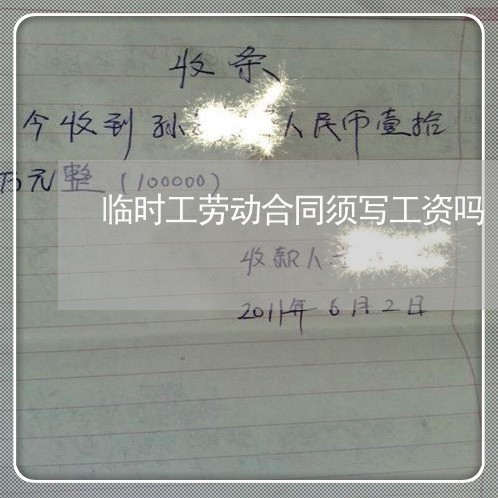 收条
今收到孙 人民币壹拾
万元整(100000)
临时工劳动合同须写工资吗
收款人
2011年6月2日